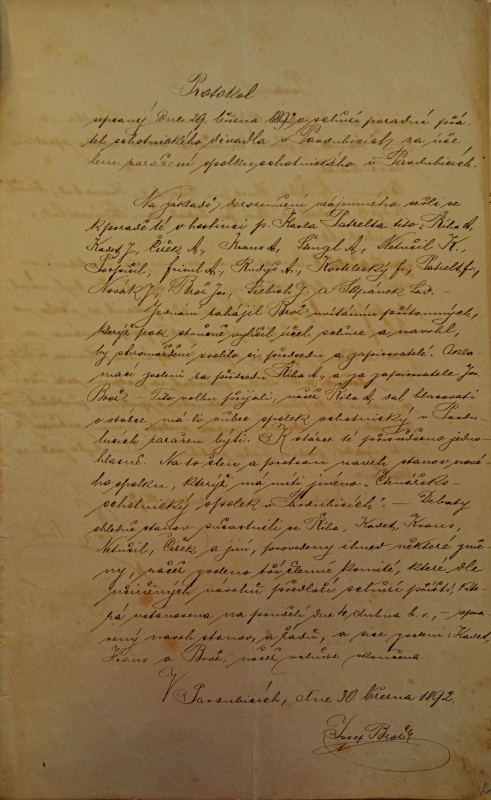 Protokol
sepsaný dne 29. března 1892 o schůzi poradní přá-
tel ochotnického divadla v Pardubicích za úče-
lem zaražení spolku ochotnického v Pardubicích.
Na základě dorozumění vzájemného sešli se
ku poradě té v hostinci p. Karla Patrelta tito: Říha A.,
Kadeř J., Čížek A., Kraus A., Langl A., Netušil K.,
Pospíšil, Friml A., Rudyš A., Kostelecký f., Patrelt f.,
Novák J., Brož Jos., Liebich J. a Štěpánek Lud. –
Jednání zahájil Brož uvítáním přítomných,
kterýž pak stručně vylíčil účel schůze a navrhl,
by shromáždění zvolilo si předsedu a zapisovatele. Akla-
mací zvoleni za předsedu Říha A., a za zapisovatele Jos.
Brož. – Tito volbu přijali, načež Říha A. dal hlasovati
o otázce má-li vůbec spolek ochotnický v Pardu-
bicích zaražen býti. K otázce té přisvědčeno jedno-
hlasně. Na to čten a probrán návrh stanov nové-
ho spolku, kterýž má míti jméno „Čtenářsko-
ochotnický spolek v Pardubicích“. – Debaty
ohledně stanov súčastnili se Říha, Kadeř, Kraus,
Netušil, Čížek a jiní, provedeny ihned některé změ-
ny, načež zvoleno tříčlenné komité, které dle
učiněných návrhů předloží schůzi příští, kte-
rá ustanovena na pondělí dne 4. dubna t. r., – upra-
vený návrh stanov, a řádů, a sice zvoleni: Kadeř,
Kraus a Brož, načež schůze skončena.
V Pardubicích, dne 30. března 1892.
Josef Brož